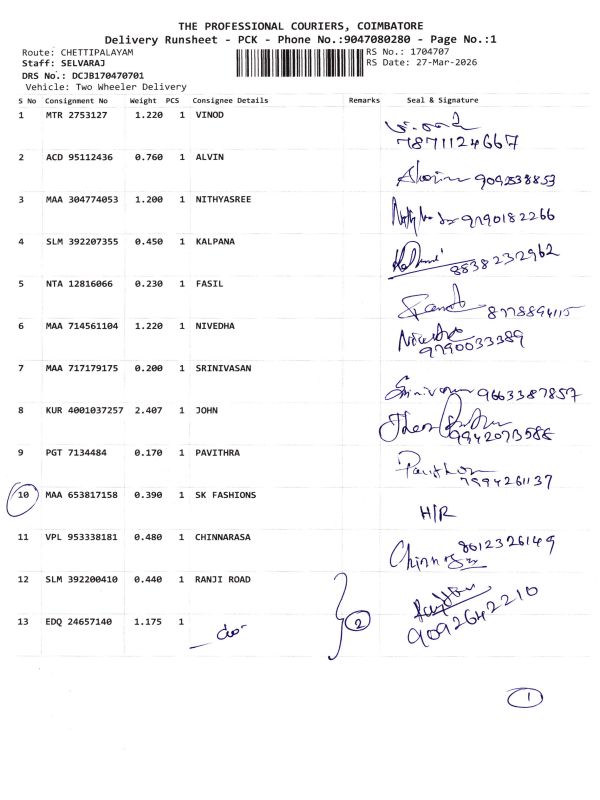 THE PROFESSIONAL COURIERS, COIMBATORE
Delivery Runsheet - PCK - Phone No.:9047080280 - Page No.:1
Route: CHETTIPALAYAM RS No.: 1704707
Staff: SELVARAJ RS Date: 27-Mar-2026
DRS No.: DCJB170470701
Vehicle: Two Wheeler Delivery
S No Consignment No Weight PCS Consignee Details Remarks Seal & Signature
1 MTR 2753127 1.220 1 VINOD
7871124667
2 ACD 95112436 0.760 1 ALVIN
9092538853
3 MAA 304774053 1.200 1 NITHYASREE
9790182266
4 SLM 392207355 0.450 1 KALPANA
8838232962
5 NTA 12816066 0.230 1 FASIL
6 MAA 714561104 1.220 1 NIVEDHA
9790033389
7 MAA 717179175 0.200 1 SRINIVASAN
9663387857
8 KUR 4001037257 2.407 1 JOHN
9942073586
9 PGT 7134484 0.170 1 PAVITHRA
7994261137
10 MAA 653817158 0.390 1 SK FASHIONS
H/R
11 VPL 953338181 0.480 1 CHINNARASA
8012326149
12 SLM 392200410 0.440 1 RANJI ROAD
13 EDQ 24657140 1.175 1
2
9092642210
1